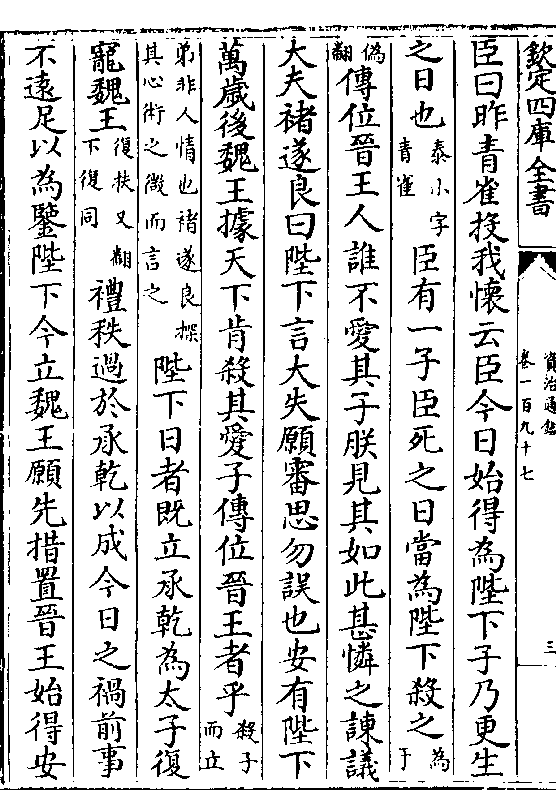 欽定四庫全書
資治通鑑
卷一百九十七
三
臣曰昨青雀投我懷云臣今日始得為陛下子乃更生
之日也泰小字青雀臣有一子臣死之日當為陛下殺之為于
偽翻傳位晉王人誰不愛其子朕見其如此甚憐之諫議
大夫褚遂良曰陛下言大失願審思勿誤也安有陛下
萬歲後魏王據天下肯殺其愛子傳位晉王者乎殺子而立
弟非人情也褚遂良探其心術之微而言之陛下日者既立承乾為太子復
寵魏王復扶又翻下復同禮秩過於承乾以成今日之禍前事
不遠足以為鑒陛下今立魏王願先措置晉王始得安